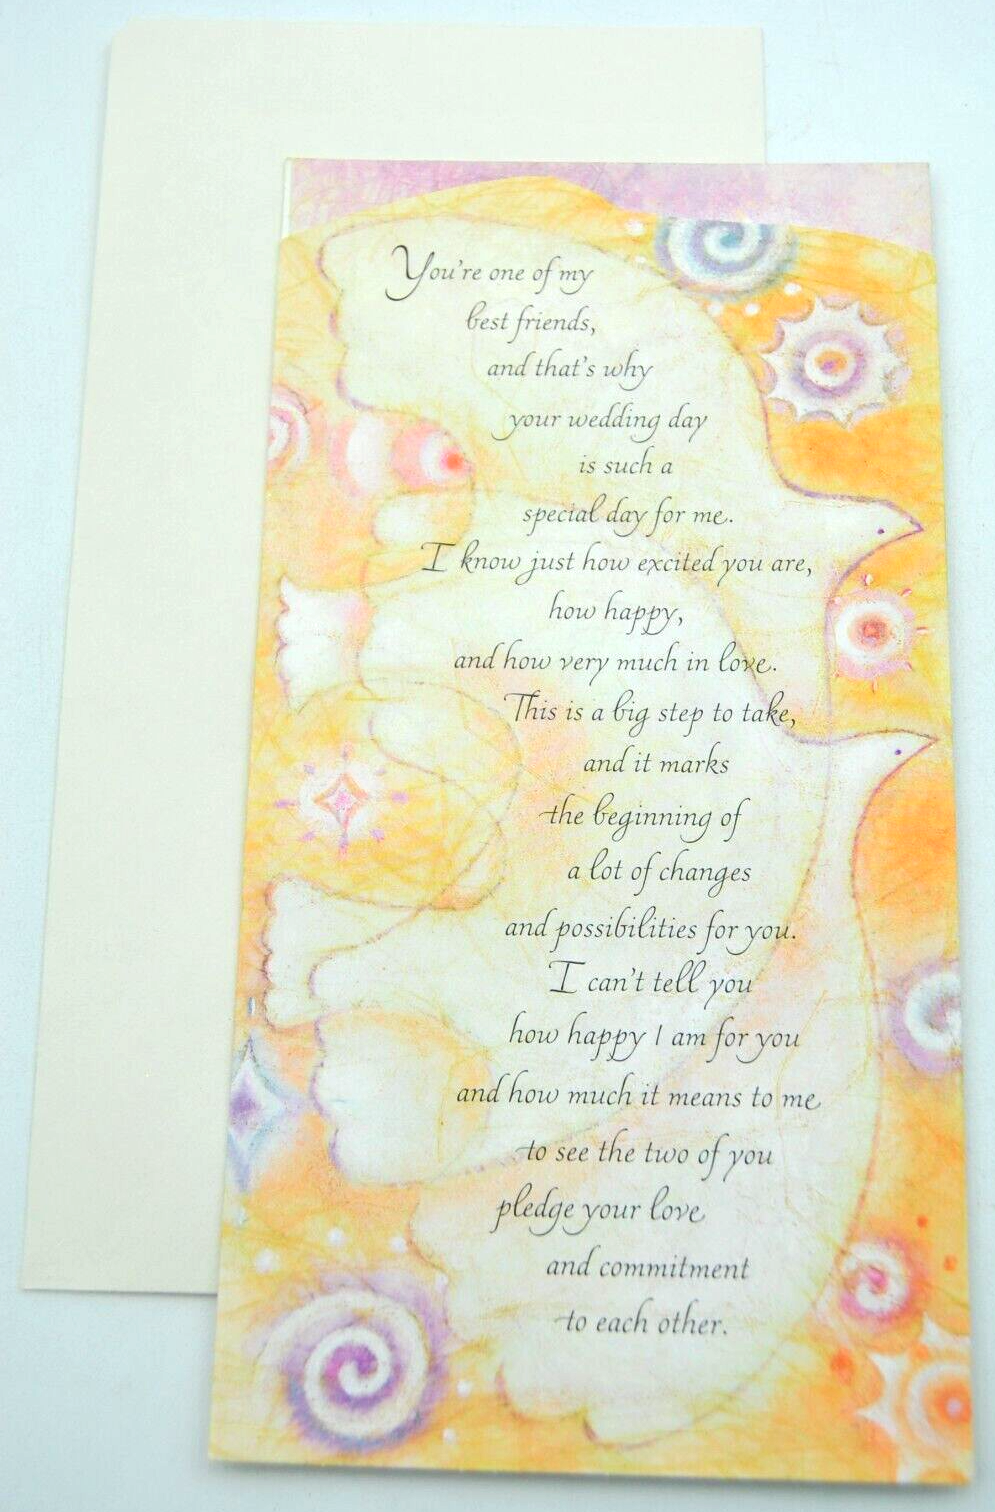 You're one of my
best friends,
and that's why
your wedding day
is such a
special day for me.
I know just how excited you are,
how happy,
and how very much in love.
This is a big step to take,
and it marks
the beginning of
a lot of changes
and possibilities for you.
I can't tell you
how happy I am for you
and how much it means to me
to see the two of you
pledge your love
and commitment
to each other.